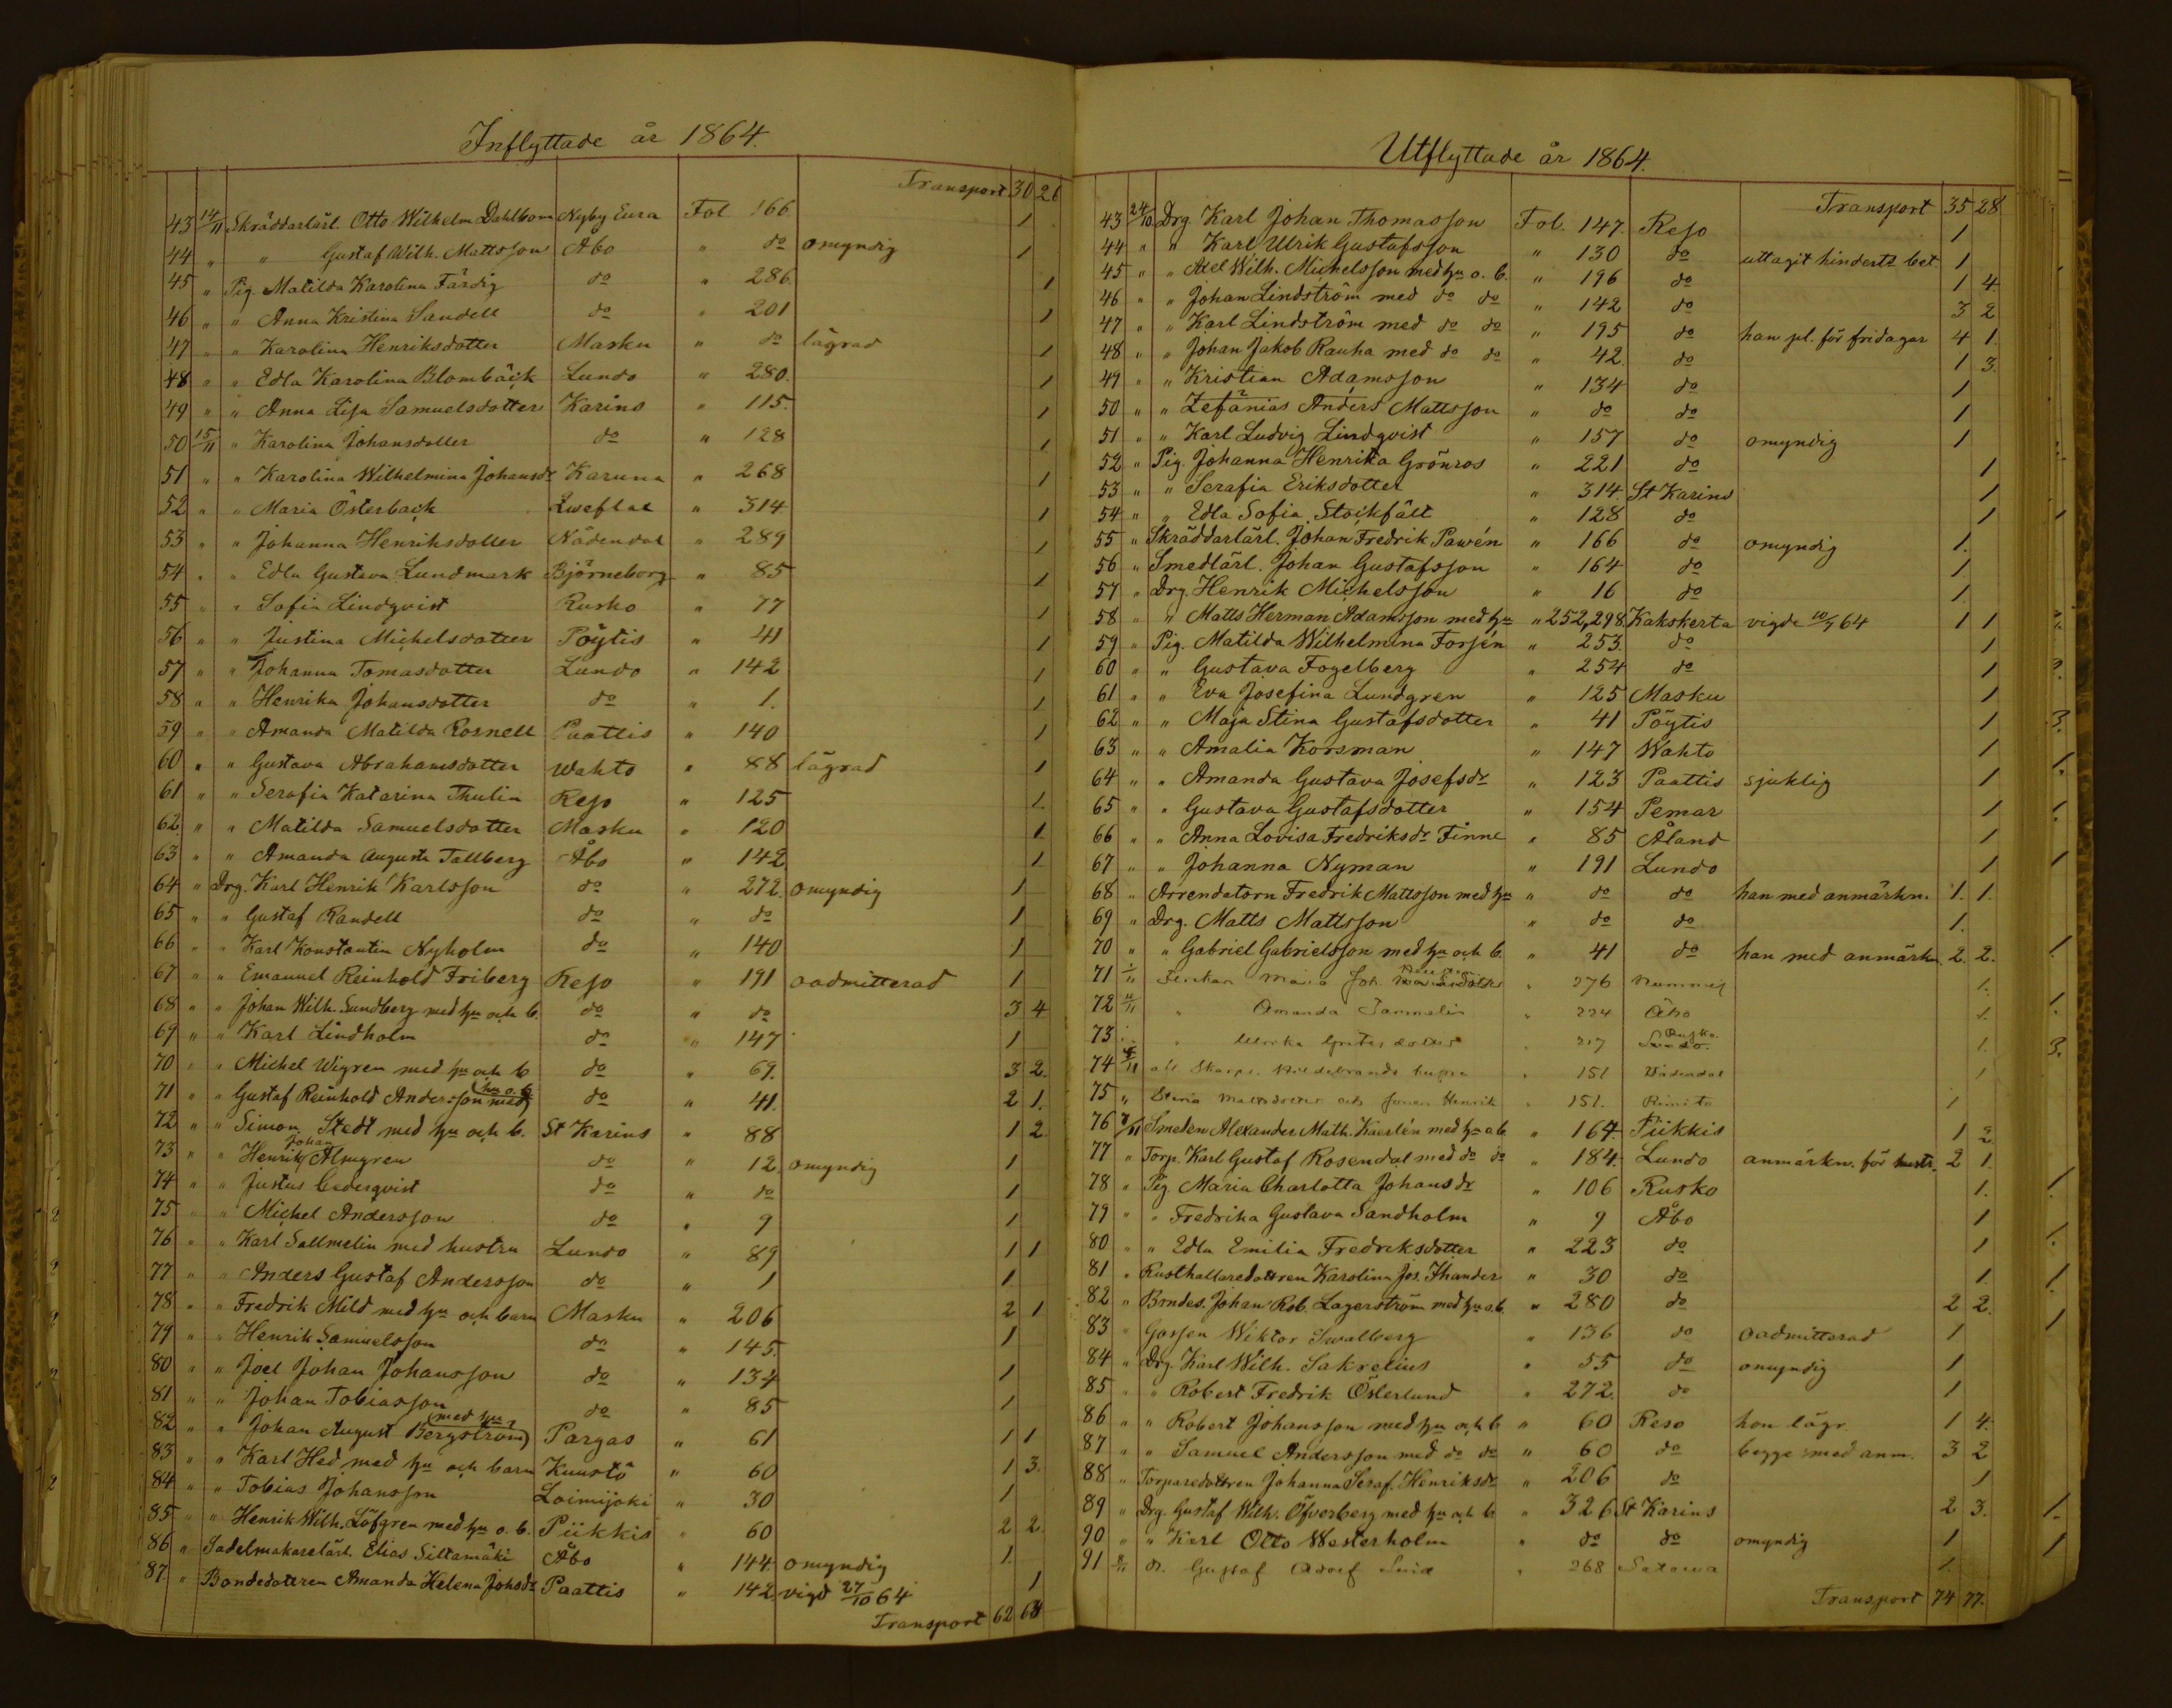 Inflyttade år 1864.
Transport 30 26
43 14/11 Skräddarlärl. Otto Wilhelm Dahlbom Nyby Eura Fol. 166. 1
44 " " Gustaf Wilh. Mattsson Åbo " do omyndig 1
45 " Pig. Matilda Karolina Färdig do " 286. 1
46 " " Anna Kristina Sandell do " 201 1
47 " " Karolina Henriksdotter Masku " do lägrad 1
48 " " Edla Karolina Blombäck Lundo " 280. 1
49 " " Anna Lisa Samuelsdotter Karins " 115. 1
50 15/11 " Karolina Johansdotter do " 128 1
51 " " Karolina Wilhelmina Johansdr Karuna " 268 1
52 " " Maria Österback " 314 1
53 " " Johanna Henriksdotter Nådendal " 289 1
54 " " Edla Gustava Lundmark Björneborg " 85 1
55 " " Sofia Lindqvist Rusko " 77 1
56 " " Justina Michelsdotter Pöytis " 41 1
57 " " Johanna Tomasdotter Lundo " 142 1
58 " " Henrika Johansdotter do " 1. 1
59 " " Amanda Matilda Rosnell Paattis " 140 1
60 " " Gustava Abrahamsdotter Wahto " 88 lägrad 1
61 " " Serafia Katarina Thulin Reso " 125 1.
62. " " Matilda Samuelsdotter Masku " 120 1
63 " " Amanda Augusta Tallberg Åbo " 142. 1
64 " Drg. Karl Henrik Karlsson do " 272. omyndig 1
65 " " Gustaf Randell do " do 1
66 " " Karl Konstantin Nyholm do " 140 1
67 " " Emanuel Reinhold Friberg Reso " 191 oadmitterad 1
68 " " Johan Wilh. Sundberg med hu och b. do " do 3 4
69 " " Karl Lindholm do " 147 1
70 " " Michel Wigren med hu och b do " 69. 3 2.
71 " " Gustaf Reinhold Andersson med hu o. b. do " 41. 2 1.
72 " " Simon Stedt med hu och b. St Karins " 88 1 2
73 " " Henrik Johan Almgren do " 12. omyndig 1
74 " " Justus Cederqvist do " do 1
75 " " Michel Andersson do " 9 1
76 " " Karl Sallmelin med hustru Lundo " 89 1 1
77 " " Anders Gustaf Andersson do " 1 1
78 " " Fredrik Mild med hu och barn Masku " 206 2 1
79 " " Henrik Samuelsson do " 145. 1
80 " " Joel Johan Johansson do " 134 1
81 " " Johan Tobiasson do " 85 1
82 " " Johan August Bergström med hu Pargas " 61 1 1
83 " " Karl Hed med hu och barn Kuustö " 60 1 3.
84 " " Tobias Johansson Loimijoki " 30 1
85 " " Henrik Wilh. Löfgren med hu o. b. Piikkis " 60 2 2.
86 " Sadelmakarelärl. Elias Siltamäki Åbo " 144. omyndig 1.
87. " Bondedottren Amanda Helena Johsdr Paattis " 142. vigd 27/10 64 1
Transport 62 64
Utflyttade år 1864.
Transport 35 28
43 24/10 Drg Karl Johan Thomasson Fol. 147. Reso 1
44 " " Karl Ulrik Gustafsson " 130 do uttagit hinderts bet. 1
45 " " Axel Wilh. Michelsson med hu o. b. " 196 do 1 4.
46 " " Johan Lindström med do do " 142 do 3 2
47 " " Karl Lindström med do do " 195 do han pl. för fridagar 4 1.
48 " " Johan Jakob Rauha med do do " 42. do 1 3.
49 " " Kristian Adamsson " 134 do 1
50 " " Zefanias Anders Mattsson " do do 1
51 " " Karl Ludvig Lindqvist " 157 do omyndig 1
52 " Pig. Johanna Henrika Grönros " 221 do 1
53 " " Serafia Eriksdotter " 314 St Karins 1
54 " " Edla Sofia Stockfält " 128 do 1
55 " Skräddarlärl. Johan Fredrik Pawén " 166 do omyndig 1.
56 " Smedlärl. Johan Gustafsson " 164 do 1.
57 " Drg. Henrik Michelsson " 16 do 1.
58 " " Matts Herman Adamsson med hu " 252,298. Kakskerta vigde 64 1 1
59 " Pig. Matilda Wilhelmina Forsén " 253. do 1
60 " " Gustava Fogelberg " 254 do 1
61 " " Eva Josefina Lundgren " 125 Masku 1
62 " " Maja Stina Gustafsdotter " 41 Pöytis 1
63 " " Amalia Korsman " 147 Wahto 1
64 " " Amanda Gustava Josefsdr " 123 Paattis sjuklig 1
65 " " Gustava Gustafsdotter " 154 Pemar 1
66 " " Anna Lovisa Fredriksdr Finne " 85 Åland 1
67 " " Johanna Nyman " 191 Lundo 1
68 " Arrendatorn Fredrik Mattsson med hu " do do han med anmärkn. 1. 1.
69 " Drg. Matts Mattsson " do do 1.
70 " " Gabriel Gabrielsson med hu och b. " 41 do han med anmärkn. 2. 2.
71 Maria Joh. " 276 1.
72 " Amanda Tammelin " 224 Åbo 1.
73 " Gretas dotter 217 Rusko 1.
74 Hildebrands hustru " 151 Nådendal 1
75 " Mattsdotter Henrik " 151. Rimito 1
76 7/11 Smeden Alexander Math. Kaerlén med hu o b. " 164. Piikkis 1 2.
77 " Torp. Karl Gustaf Rosendal med do do " 184. Lundo anmärkn. för hustr. 2 1.
78 " Pig. Maria Charlotta Johansdr " 106 Rusko 1.
79 " " Fredrika Gustava Sandholm " 9 Åbo 1
80 " " Edla Emilia Fredriksdotter " 223 do 1
81 " Rusthallaredottren Karolina Jos. Ithander " 30 do 1.
82 " Bondes. Johan Rob. Lagerström med hu o. b. " 280 do 2 2.
83 " Gossen Wiktor Swalberg " 136 do oadmitterad 1
84 " Drg. Karl Wilh. Sakrelius " 55 do omyndig 1
85 " " Robert Fredrik Österlund " 272. do 1
86 " " Robert Johansson med hu och b " 60 Reso hon lägr. 1 4.
87 " " Samuel Andersson med do do " 60 do begge med anm. 3 2
88 " Torparedottren Johanna Seraf. Henriksdr " 206 do 1
89 " Drg. Gustaf Wilh. Öfverberg med hu och b " 326 St Karins 2 3.
90 " " Karl Otto Westerholm " do do omyndig 1
91 Gustaf Adolf " 268 Satawa 1.
Transport 74 77.